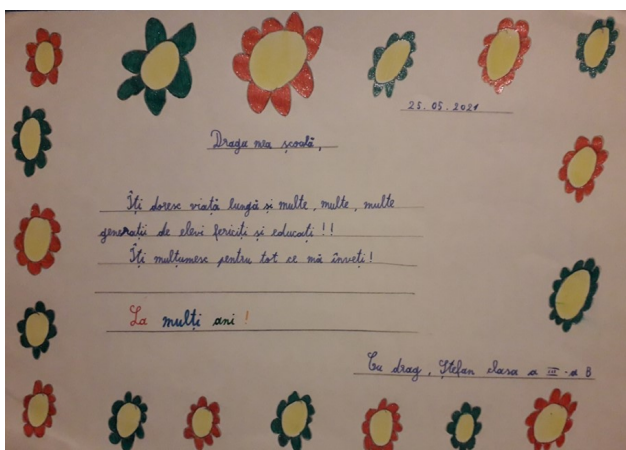 25.05.2021
Draga mea școală,
Îți doresc viață lungă și multe, multe, multe
generații de elevi fericiți și educați!!
Îți mulțumesc pentru tot ce mă înveți!
La mulți ani!
Cu drag, Ștefan clasa a III-a B